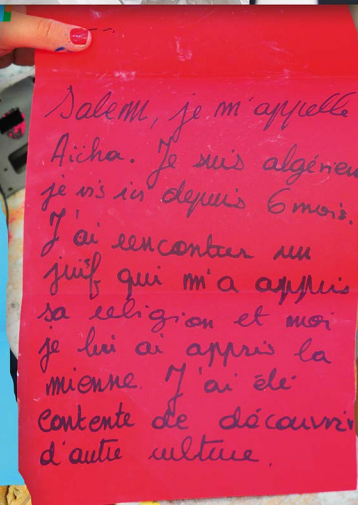 Salem, je m'appelle
Aïcha. Je suis algérien
je vis ici depuis 6 mois.
J'ai rencontrer un
juif qui m'a appris
sa religion et moi
je lui ai appris la
mienne. J'ai été
contente de découvrir
d'autre culture.